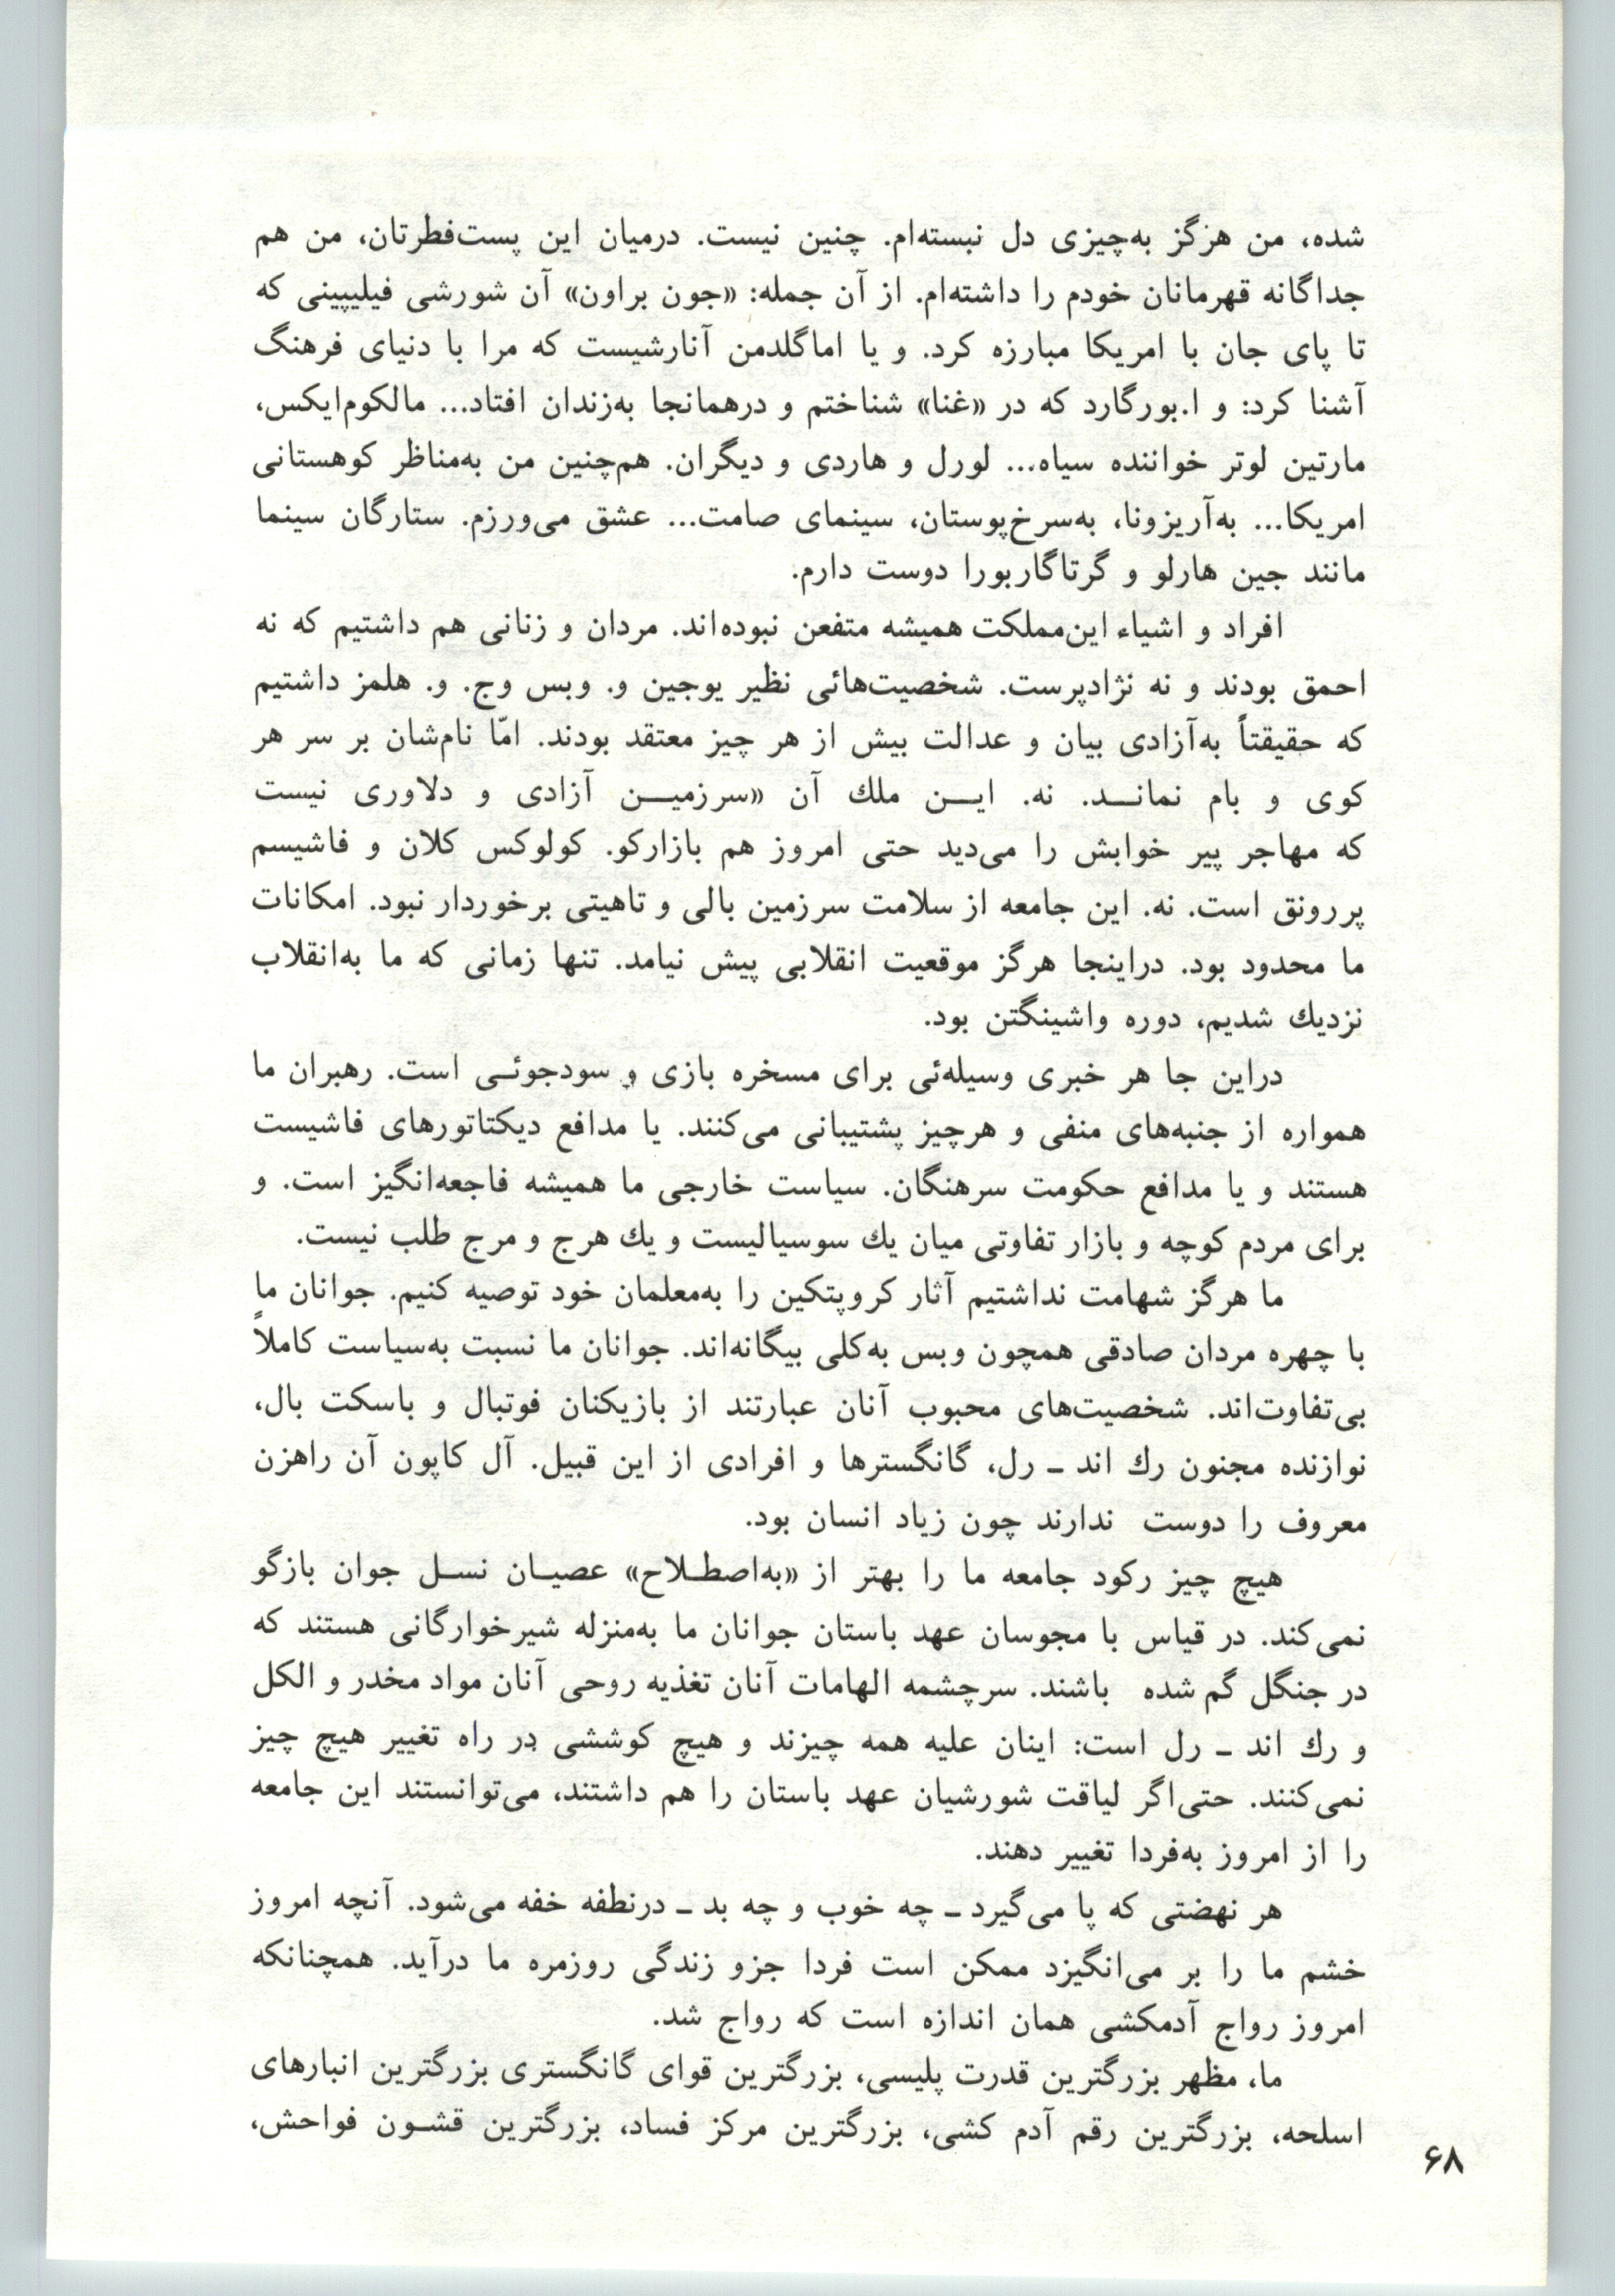 شده، من هرگز به‌چیزی دل نبسته‌ام. چنین نیست. درمیان این پست‌فطرتان، من هم
جداگانه قهرمانان خودم را داشته‌ام. از آن جمله: «جون براون» آن شورشی فیلیپینی که
تا پای جان با امریکا مبارزه کرد. و یا اماگلدمن آنارشیست که مرا با دنیای فرهنگ
آشنا کرد: و ا.بورگارد که در «غنا» شناختم و درهمانجا به‌زندان افتاد... مالکوم‌ایکس،
مارتین لوتر خواننده سیاه... لورل و هاردی و دیگران. هم‌چنین من به‌مناظر کوهستانی
امریکا... به‌آریزونا، به‌سرخ‌پوستان، سینمای صامت... عشق می‌ورزم. ستارگان سینما
مانند جین هارلو و گرتاگاربورا دوست دارم.
افراد و اشیاء این‌مملکت همیشه متفعن نبوده‌اند. مردان و زنانی هم داشتیم که نه
احمق بودند و نه نژادپرست. شخصیت‌هائی نظیر یوجین و. وبس وج. و. هلمز داشتیم
که حقیقتاً به‌آزادی بیان و عدالت بیش از هر چیز معتقد بودند. امّا نام‌شان بر سر هر
کوی و بام نمانـــد. نه. ایـــن ملك آن «سرزمیـــن آزادی و دلاوری نیست
که مهاجر پیر خوابش را می‌دید حتی امروز هم بازارکو. کولوکس کلان و فاشیسم
پررونق است. نه. این جامعه از سلامت سرزمین بالی و تاهیتی برخوردار نبود. امکانات
ما محدود بود. دراینجا هرگز موقعیت انقلابی پیش نیامد. تنها زمانی که ما به‌انقلاب
نزدیك شدیم، دوره واشینگتن بود.
دراین جا هر خبری وسیله‌ئی برای مسخره بازی و سودجوئـی است. رهبران ما
همواره از جنبه‌های منفی و هرچیز پشتیبانی می‌کنند. یا مدافع دیکتاتورهای فاشیست
هستند و یا مدافع حکومت سرهنگان. سیاست خارجی ما همیشه فاجعه‌انگیز است. و
برای مردم کوچه و بازار تفاوتی میان یك سوسیالیست و یك هرج و مرج طلب نیست.
ما هرگز شهامت نداشتیم آثار کروپتکین را به‌معلمان خود توصیه کنیم. جوانان ما
با چهره مردان صادقی همچون وبس به‌کلی بیگانه‌اند. جوانان ما نسبت به‌سیاست کاملاً
بی‌تفاوت‌اند. شخصیت‌های محبوب آنان عبارتند از بازیکنان فوتبال و باسکت بال،
نوازنده مجنون رك اند ـ رل، گانگسترها و افرادی از این قبیل. آل کاپون آن راهزن
معروف را دوست ندارند چون زیاد انسان بود.
هیچ چیز رکود جامعه ما را بهتر از «به‌اصطـلاح» عصیـان نسـل جوان بازگو
نمی‌کند. در قیاس با مجوسان عهد باستان جوانان ما به‌منزله شیرخوارگانی هستند که
در جنگل گم شده باشند. سرچشمه الهامات آنان تغذیه روحی آنان مواد مخدر و الکل
و رك اند ـ رل است: اینان علیه همه چیزند و هیچ کوششی در راه تغییر هیچ چیز
نمی‌کنند. حتی‌اگر لیاقت شورشیان عهد باستان را هم داشتند، می‌توانستند این جامعه
را از امروز به‌فردا تغییر دهند.
هر نهضتی که پا می‌گیرد ـ چه خوب و چه بد ـ درنطفه خفه می‌شود. آنچه امروز
خشم ما را بر می‌انگیزد ممکن است فردا جزو زندگی روزمره ما درآید. همچنانکه
امروز رواج آدمکشی همان اندازه است که رواج شد.
ما، مظهر بزرگترین قدرت پلیسی، بزرگترین قوای گانگستری بزرگترین انبارهای
اسلحه، بزرگترین رقم آدم کشی، بزرگترین مرکز فساد، بزرگترین قشـون فواحش،
۶۸